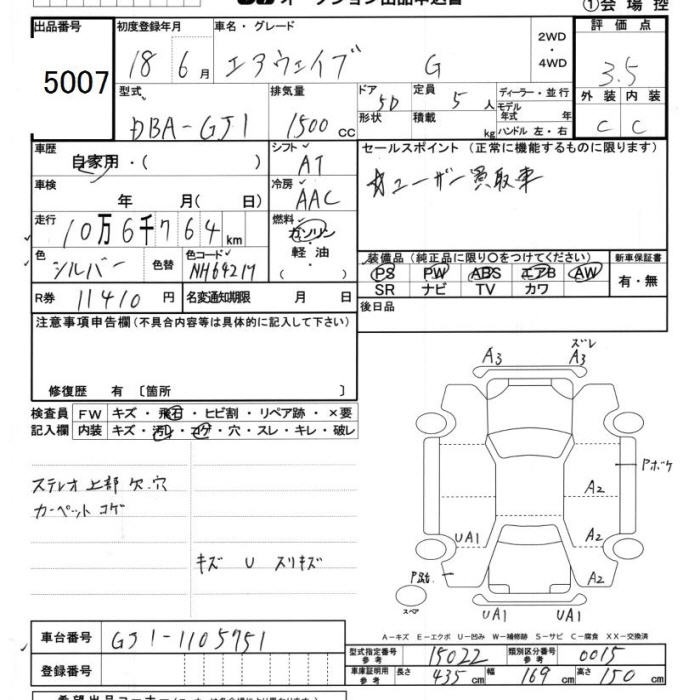 ①会場控
出品番号 初度登録年月 車名・グレード 評価点
5007 18 6月 エアウェイブ G 2WD・4WD 3.5
型式 排気量 ドア 定員 ディーラー・並行 外装 内装
DBA-GJ1 1500cc 5D 5人 モデル年式 年 C C
形状 積載 kg ハンドル 左・右
車歴 シフト セールスポイント (正常に機能するものに限ります)
自家用・( ) AT ☆ユーザー買取車
車検 年 月( 日) 冷房 AAC
走行 10万6千764km 燃料 ガソリン 軽・油 ( )
色 シルバー 色替 色コード NH642M
装備品 (純正品に限り〇をつけてください) 新車保証書
PS PW ABS エアB AW 有・無
SR ナビ TV カワ
R券 11410円 名変通知期限 月 日 後日品
注意事項申告欄(不具合内容等は具体的に記入して下さい)
修復歴 有 [箇所 ]
検査員 FW キズ・飛石・ヒビ割・リペア跡・×要
記入欄 内装 キズ・汚れ・コゲ・穴・スレ・キレ・破レ
ステレオ上部 欠.穴
カーペットコゲ
キズ U スリキズ
ズレ
A3 A3
Pボケ
A2
UA1 A2
A2
スペア UA1 UA1
A-キズ E-エクボ U-凹み W-補修跡 S-サビ C-腐食 XX-交換済
車台番号 GJ1-1105751
型式指定番号 参考 15022 類別区分番号 参考 0015
登録番号
車庫証明用 参考 長さ 435cm 幅 169cm 高さ 150cm